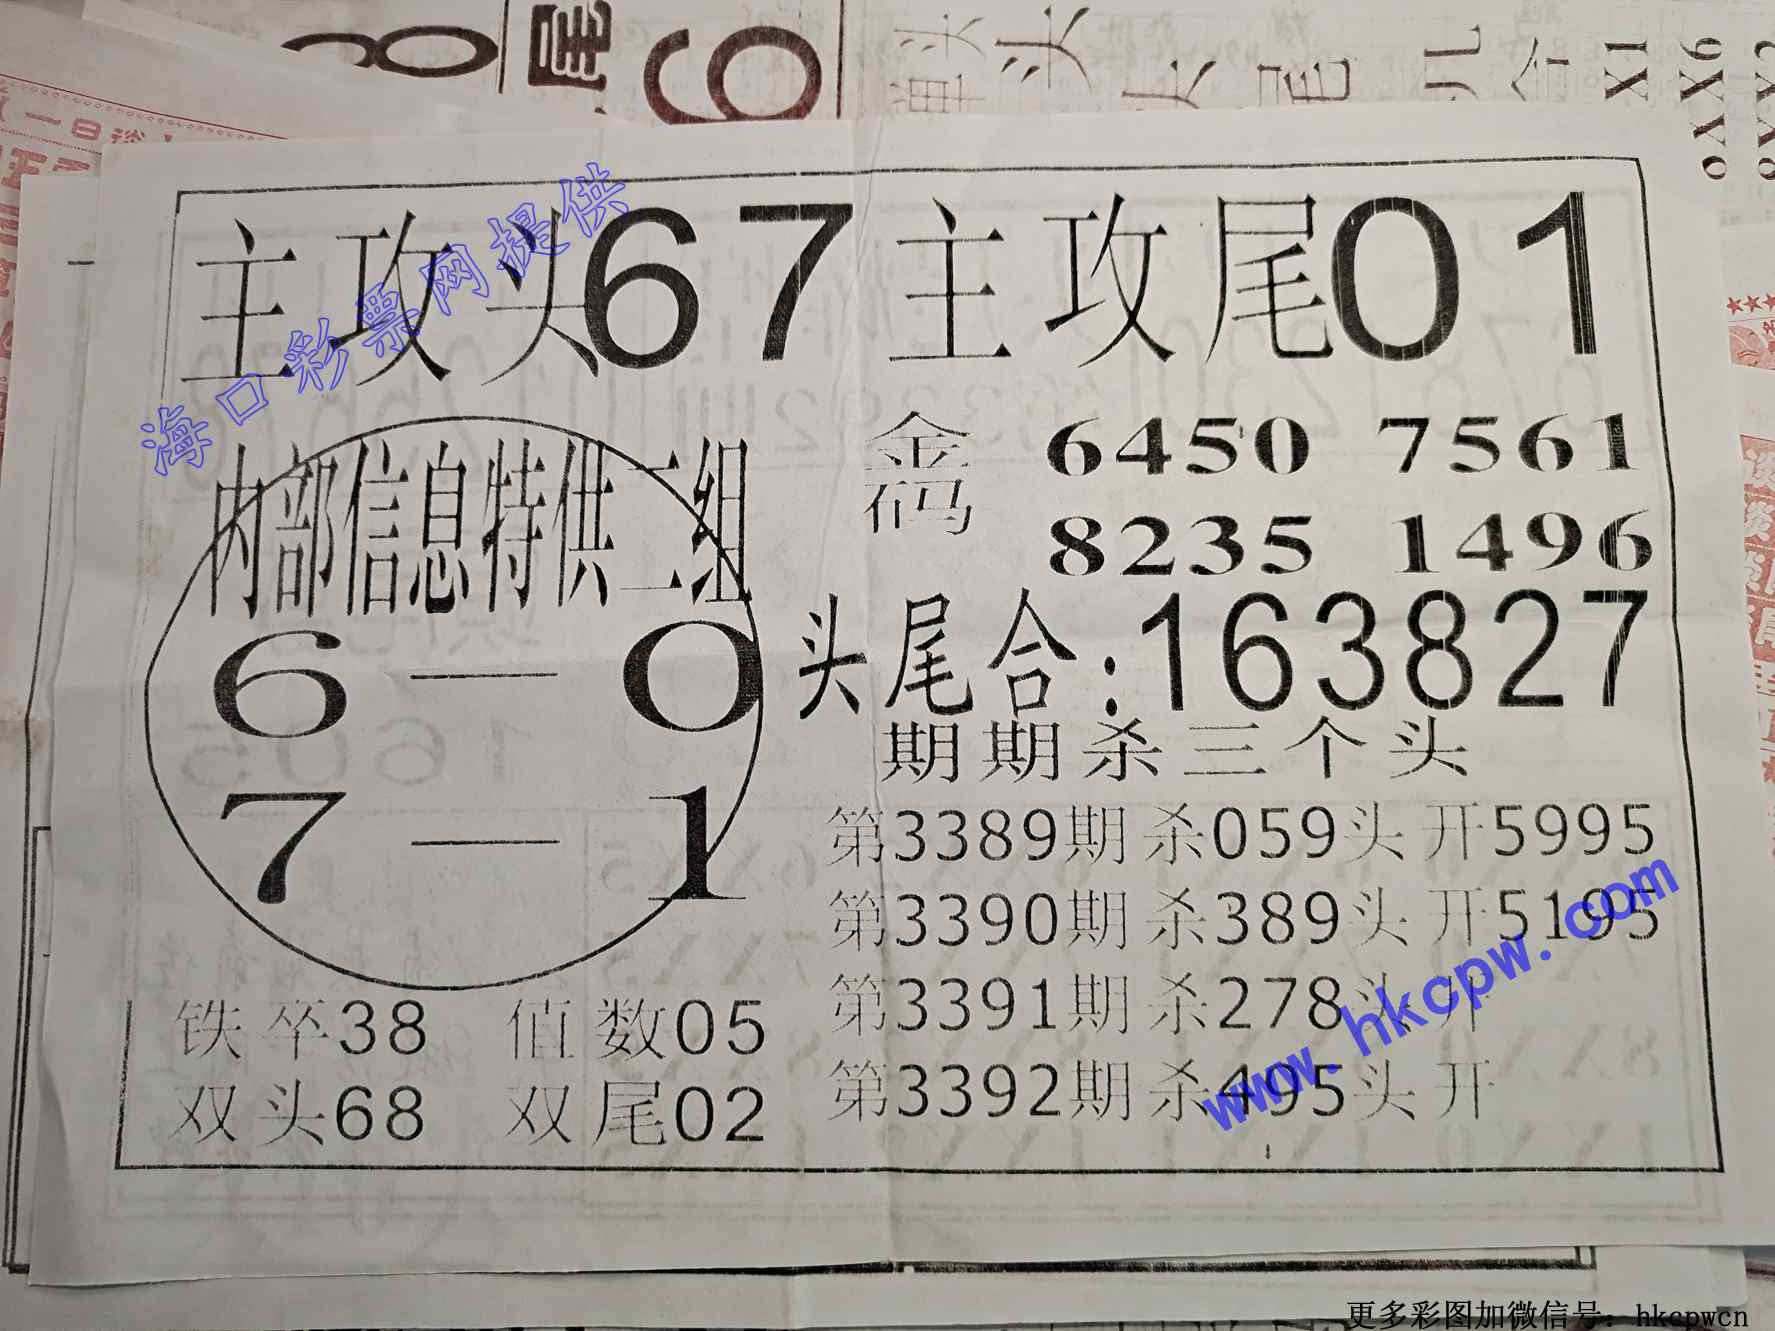 主攻头67 主攻尾01
海口彩票网提供
内部信息特供二组
6—0
7—1
铁卒38 值数05
双头68 双尾02
金码 6450 7561
8235 1496
头尾合:163827
期期杀三个头
第3389期杀059头开5995
第3390期杀389头开5195
第3391期杀278头开
第3392期杀495头开
www.hkcpw.com
更多彩图加微信号: hkcpwcn